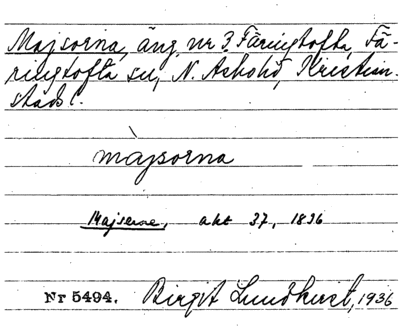 Majsorna, äng, nr 3 Färingtofta, Fä-
ringtofta sn, N. Åsbohd, Kristian-
stads l.
màjsorna
Majserne, akt 37, 1836
Nr 5494. Birgit Lundkvist, 1936